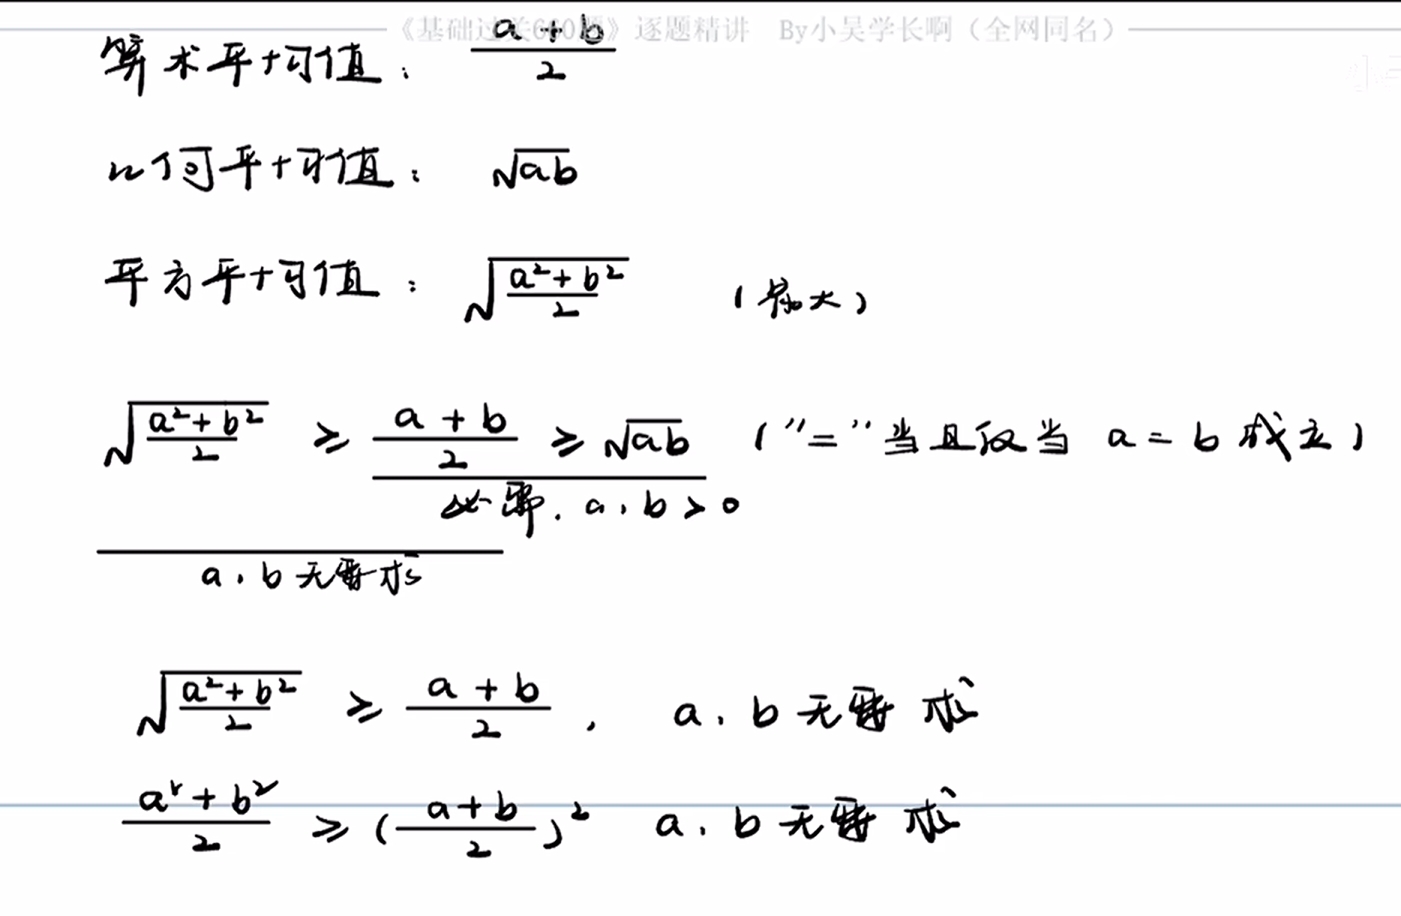 《基础过关660题》逐题精讲 By小吴学长啊（全网同名）
算术平均值： (a+b)/2
几何平均值： √ab
平方平均值： √((a²+b²)/2) （最大）
√((a²+b²)/2) ≥ (a+b)/2 ≥ √ab （"="当且仅当 a=b 成立）
必要. a, b > 0
a, b 无要求
√((a²+b²)/2) ≥ (a+b)/2 , a, b 无要求
(a²+b²)/2 ≥ ((a+b)/2)² a, b 无要求